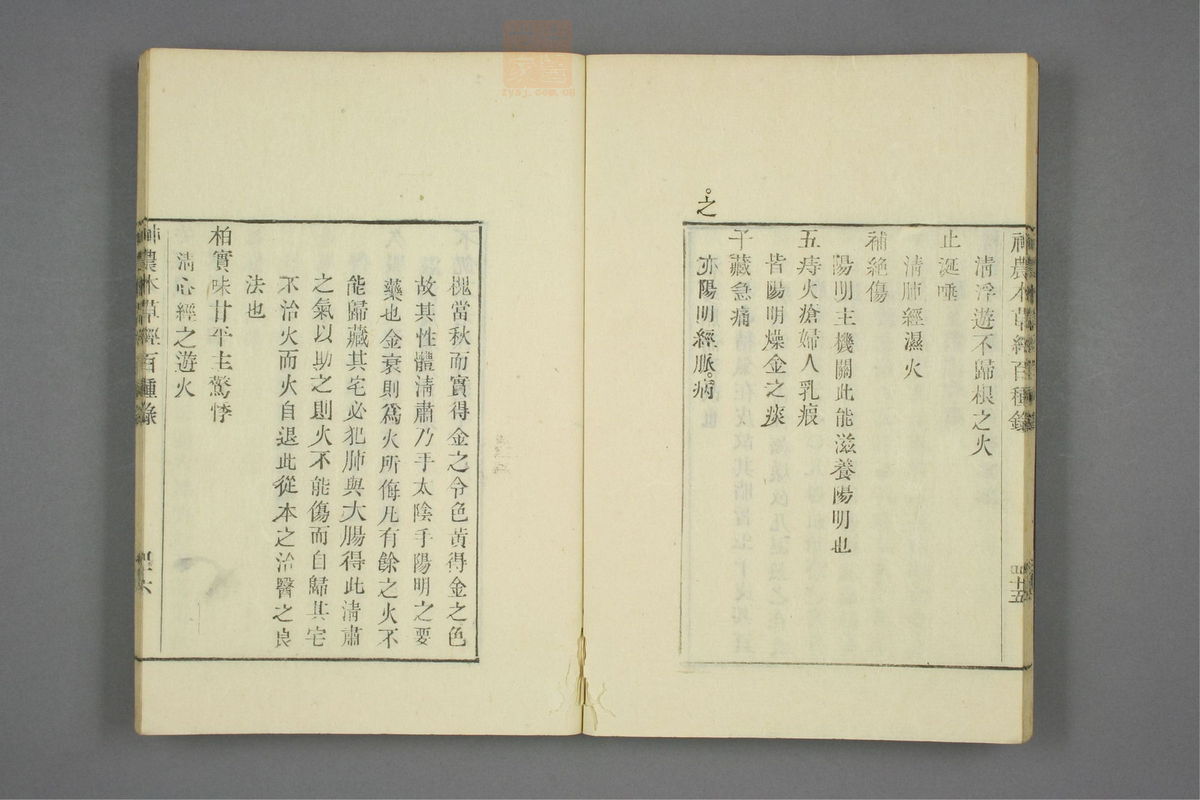 神農本草經百種錄
四十五
清浮遊不歸根之火
止涎唾
清肺經濕火
補絶傷
陽明主機關此能滋養陽明也
五痔火瘡婦人乳瘕
皆陽明燥金之疾
子藏急痛
亦陽明經脈病
之
槐當秋而實得金之令色黃得金之色
故其性體清肅乃手太陰手陽明之要
藥也金衰則爲火所侮凡有餘之火不
能歸藏其宅必犯肺與大腸得此清肅
之氣以助之則火不能傷而自歸其宅
不治火而火自退此從本之治醫之良
法也
柏實味甘平主驚悸
清心經之遊火
神農本草經百種錄
zysj.com.cn